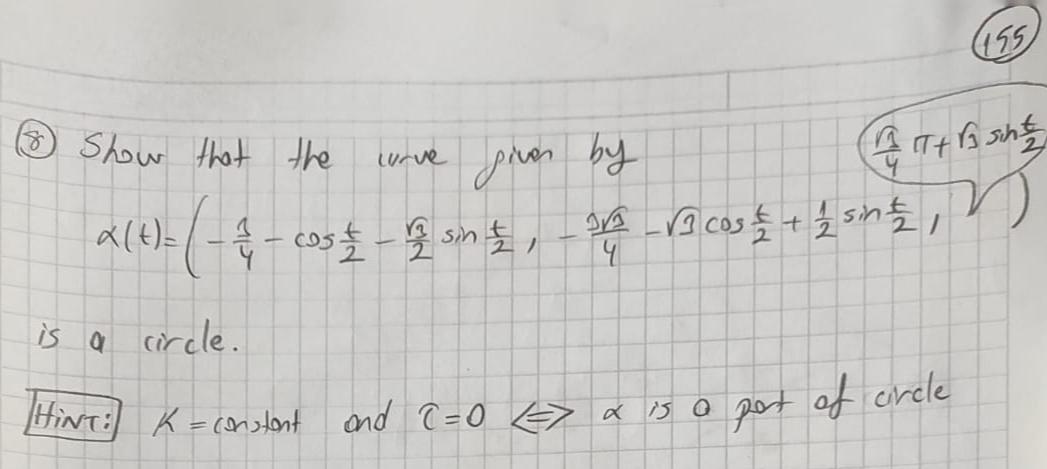 155
⑧ Show that the curve given by
α(t)=(-3/4 - cos t/2 - √3/2 sin t/2, -3√3/4 - √3 cos t/2 + 1/2 sin t/2, √3/4 π + √3 sin t/2)
is a circle.
HINT: K = constant and τ=0 <=> α is a part of circle